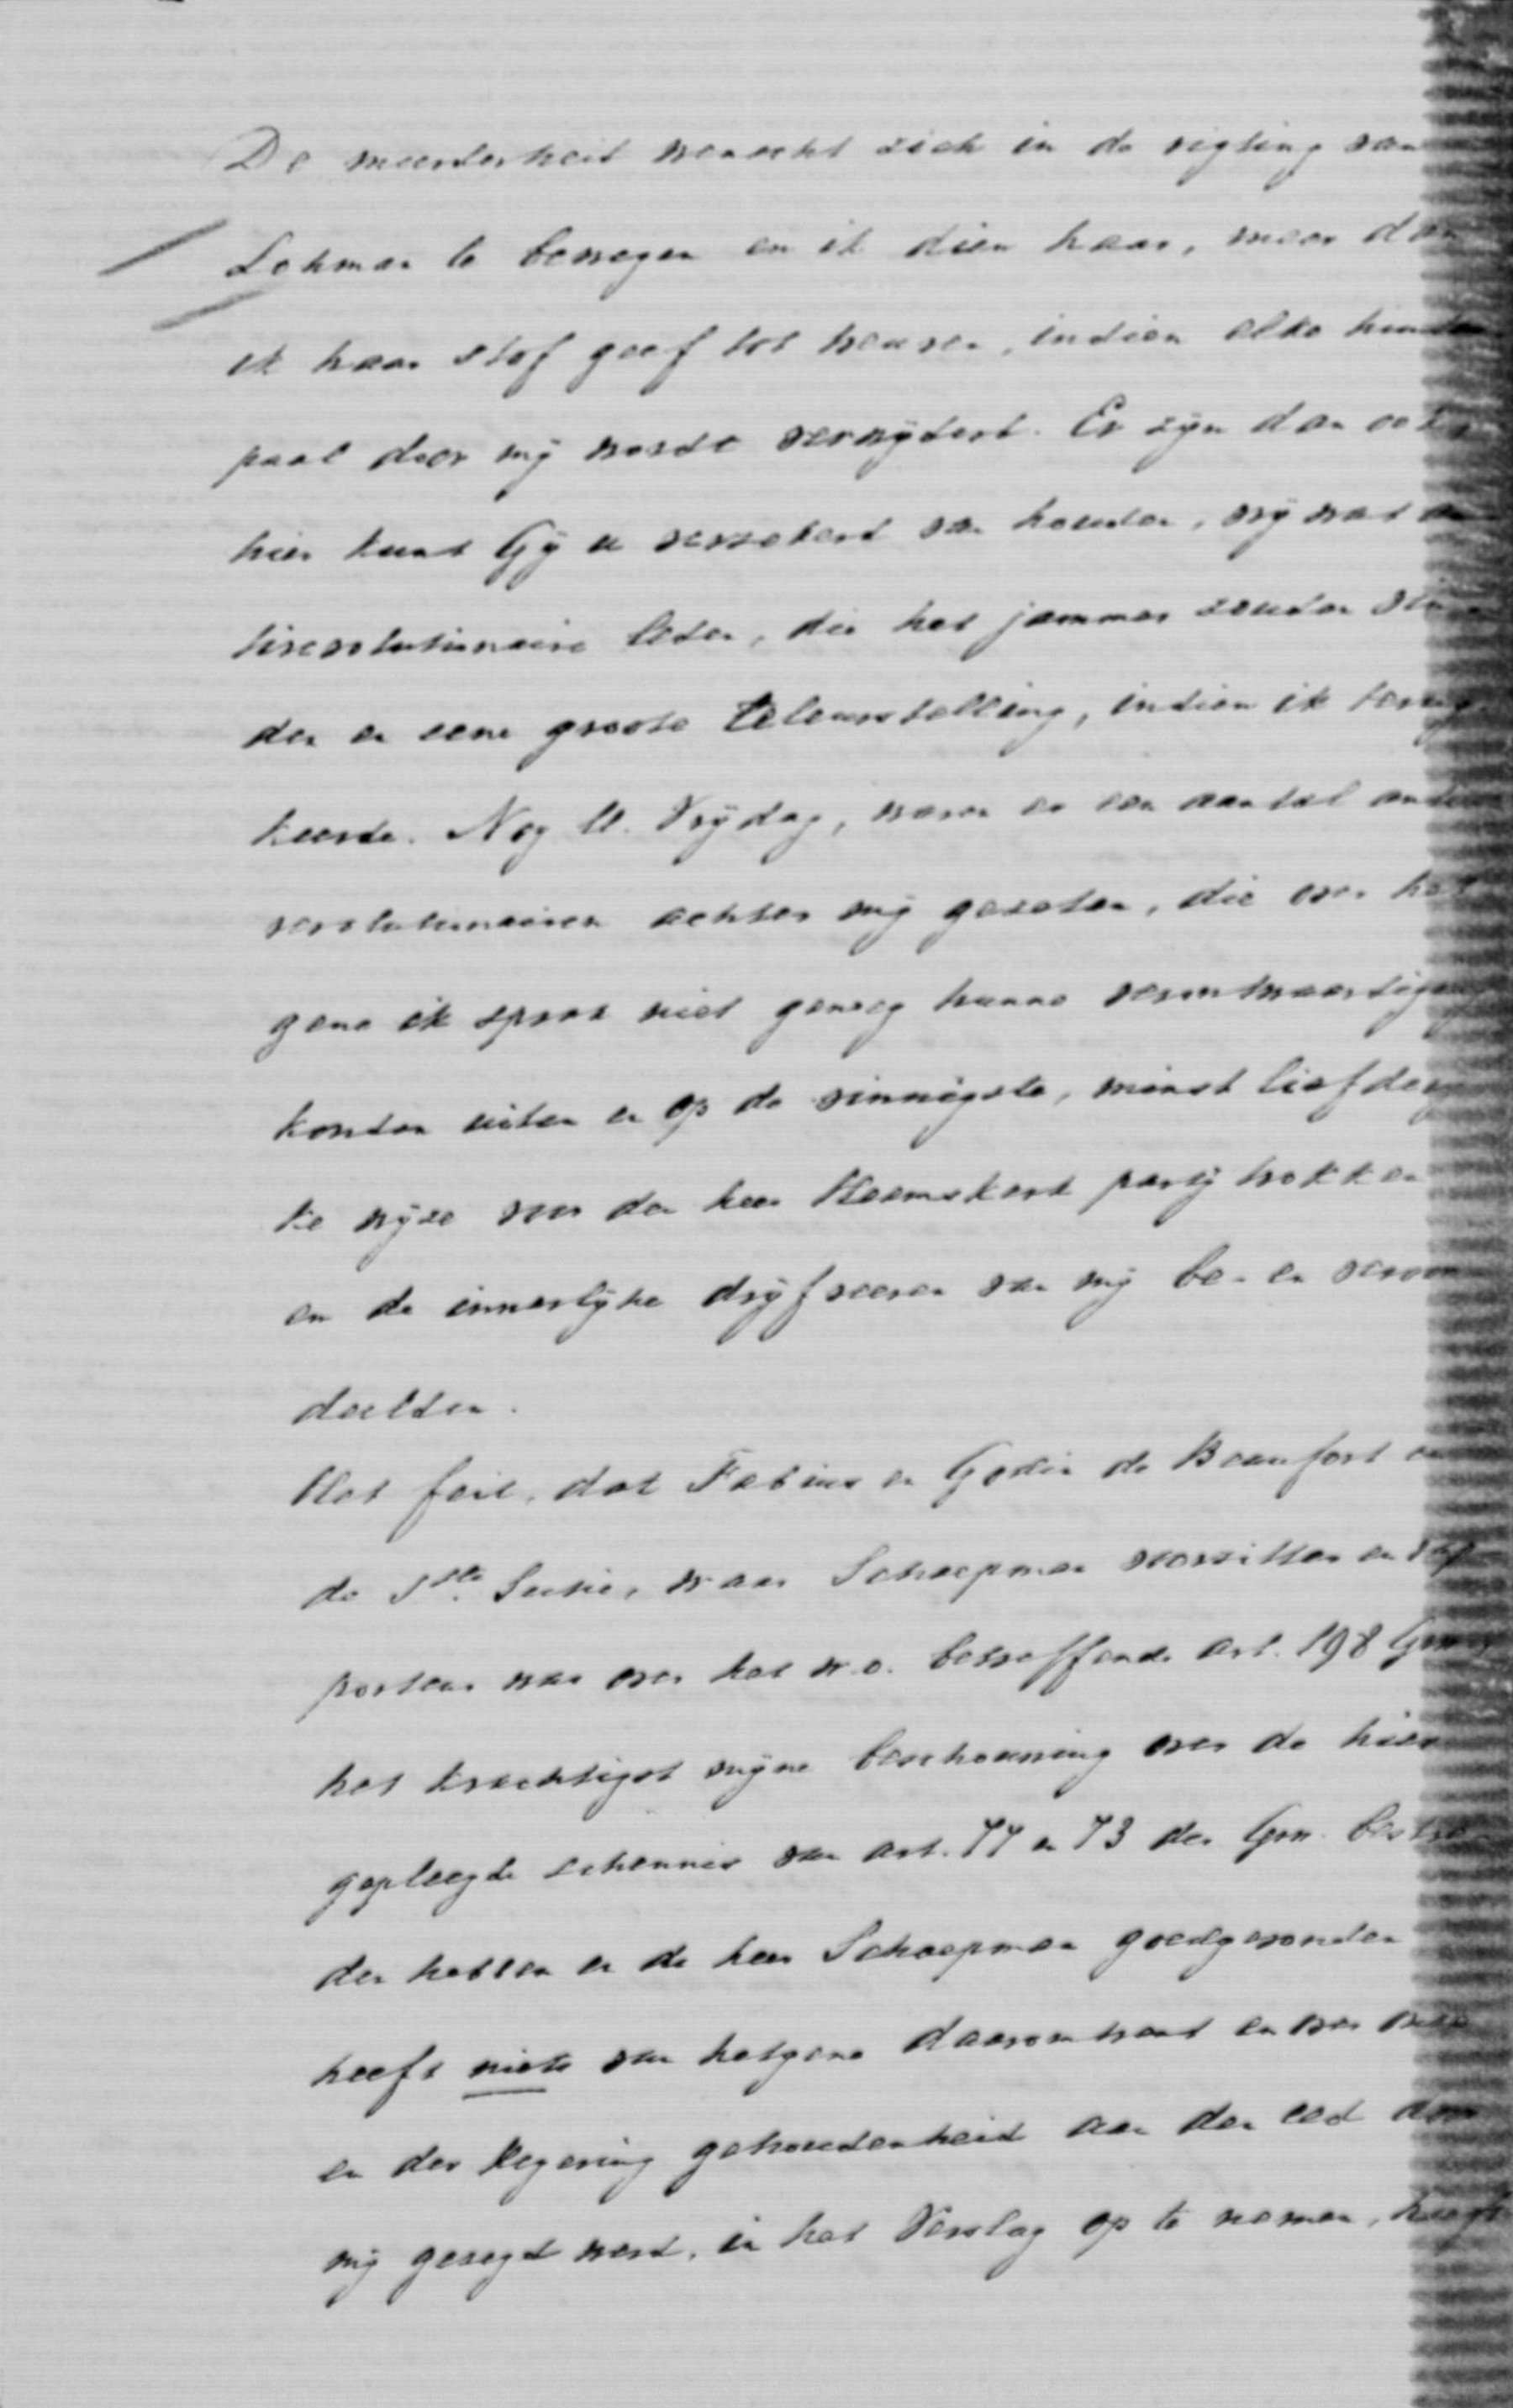 De meerderheid wenscht zich in de rigting van
Lohman te bewegen en ik dien haar, meer dan
ik haar stof geef tot treuren, indien elke hinder
paal door mij wordt verwijderd. Er zijn dan ook,
hier kunt Gij u verzekerd van houden, vrij wat an
tirevolutionaire leden, die het jammer zouden vin
den en eene groote teleurstelling, indien ik terug
keerde. Nog ll. Vrijdag, waren er een aantal anti
revolutionairen achter mij gezeten, die over het
gene ik sprak niet genoeg hunne verontwaardiging
konden uiten en op de vinnigste, minst liefderij
ke wijze voor den heer Heemskerk partij trokken
en de innerlijke drijfveeren van mij be- en veroor
deelden.
Het feit, dat Fabius en Godin de Beaufort in
de Sectie, waar Schaepman voorzitter en rap
porteur was over het w.o. betreffende art. 198 Grw.
het krachtigst mijne beschouwing over de hier
gepleegde schennis van art. 74 en 73 der Grw. bestre
den hebben en de heer Schaepman goedgevonden
heeft niets van hetgene daaromtrent en over
en der Regering gehoudenheid aan den eed door
mij gezegd werd, in het Verslag op te nemen, heeft